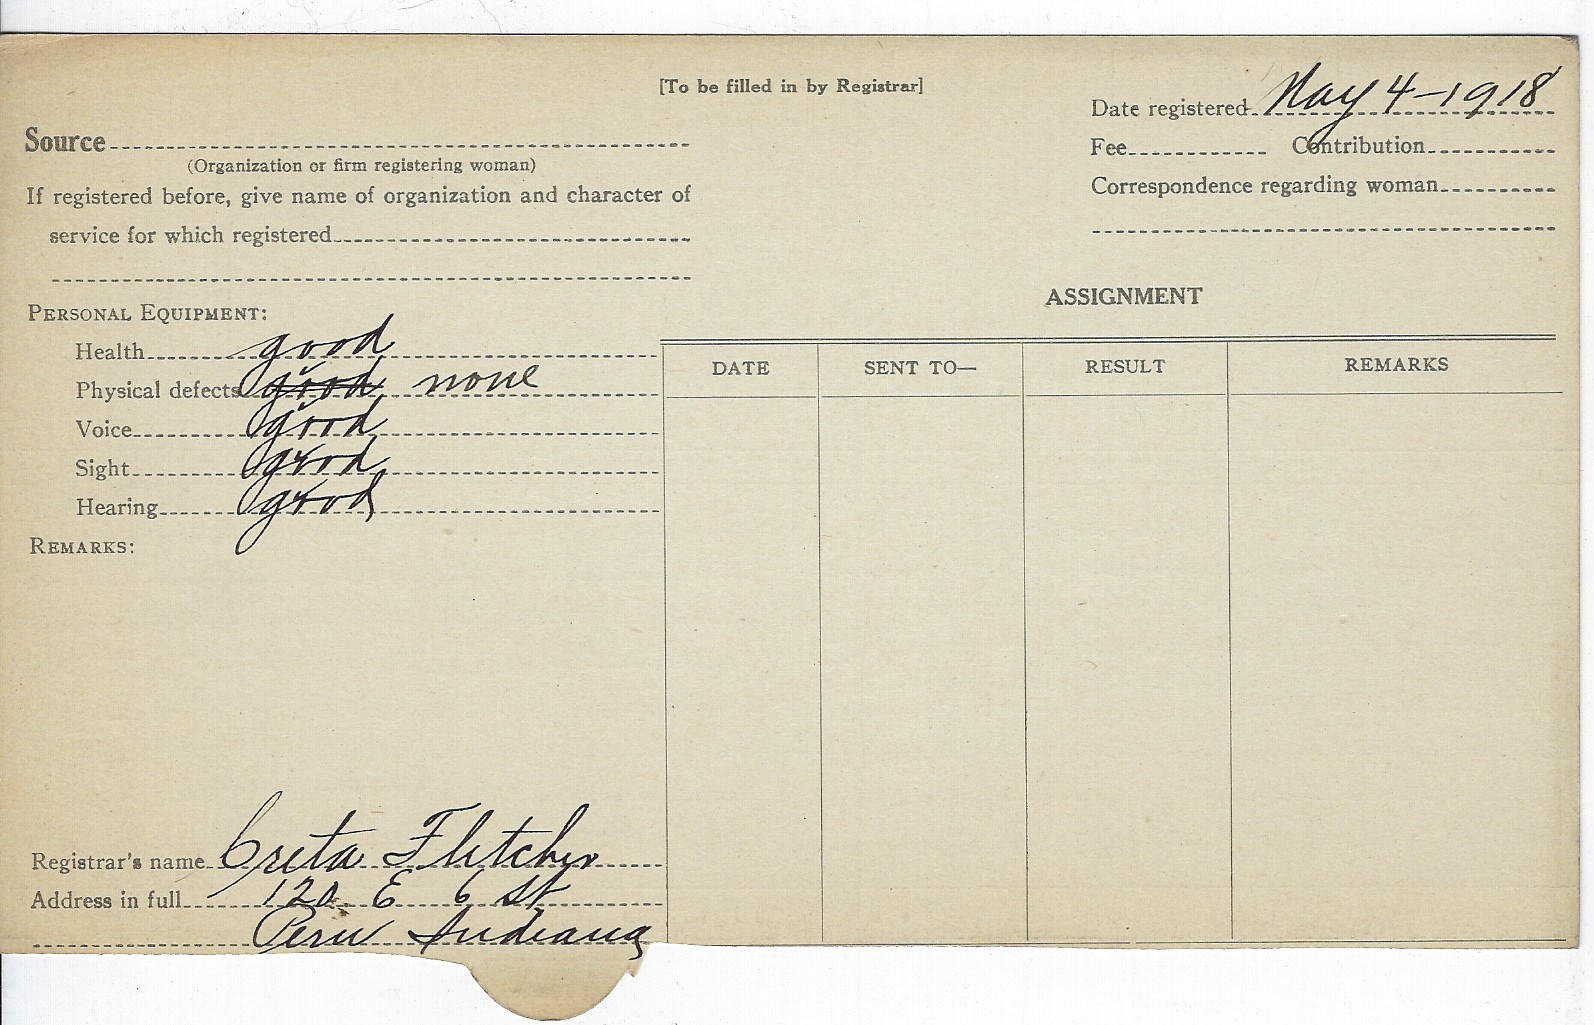 [To be filled in by Registrar]
Date registered May 4-1918
Source
(Organization or firm registering woman)
Fee Contribution
If registered before, give name of organization and character of
Correspondence regarding woman
service for which registered
ASSIGNMENT
PERSONAL EQUIPMENT:
Health good
Physical defects good none
Voice good
Sight good
Hearing good
REMARKS:
DATE SENT TO— RESULT REMARKS
Registrar's name Greta Fletcher
Address in full 120 E 6 St
Peru Indiana